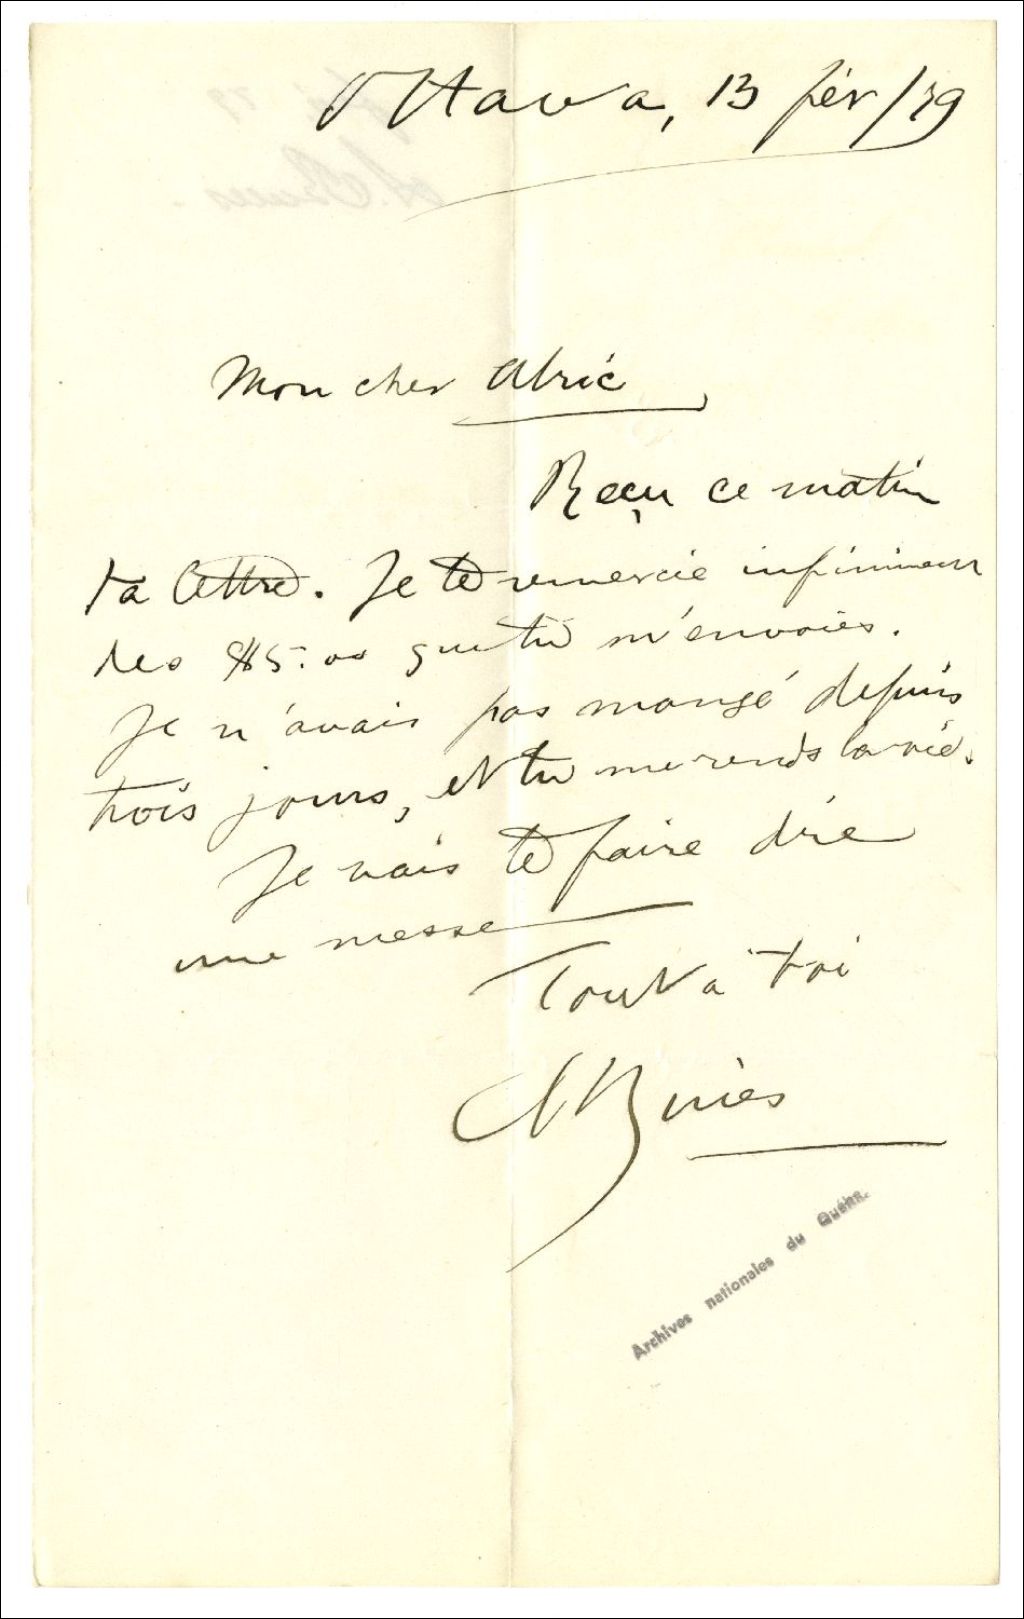 Ottawa, 13 fév/79
Mon cher Alric
Reçu ce matin
ta lettre. Je te remercie infiniment
des $5.00 que tu m'envoies.
Je n'avais pas mangé depuis
trois jours, et tu me rends la vie.
Je vais te faire dire
une messe
Tout à toi
A Buies
Archives nationales du Québec